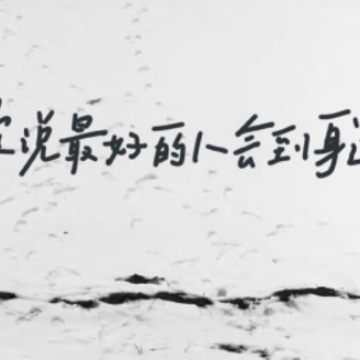 说最好的人会到身